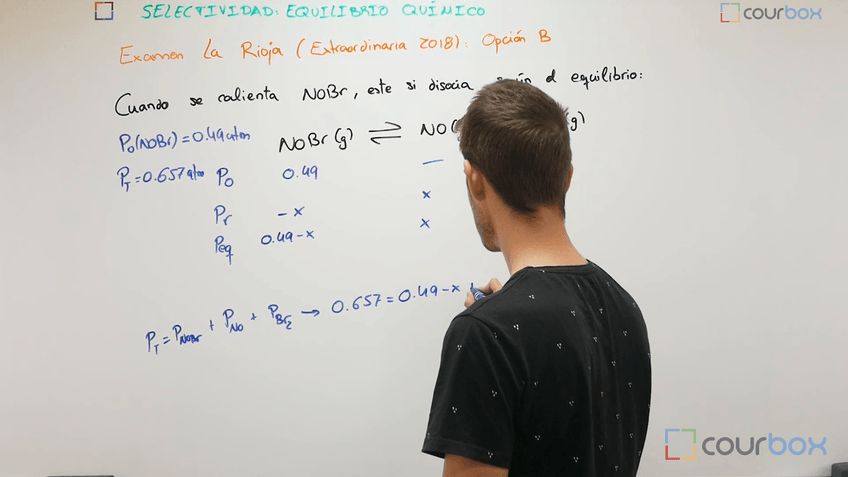 SELECTIVIDAD: EQUILIBRIO QUÍMICO
courbox
Examen La Rioja (Extraordinaria 2018): Opción B
Cuando se calienta NOBr, este si disocia el equilibrio:
P₀(NOBr)=0.49atm NOBr(g) ⇌ NO( g)
P_T=0.657atm P₀ 0.49 —
Pr -x x
Peq 0.49-x x
P_T=P_NOBr + P_NO + P_Br₂ → 0.657=0.49-x
courbox